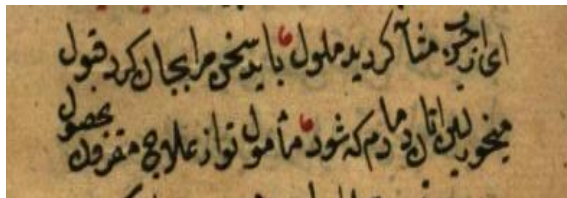 ای از جرب مثانه کردیده ملول باید سخن مرا بجان کرد قبول
میخور لبن اتان دمادم که شود مأمول تو از علاج مقرون بحصول